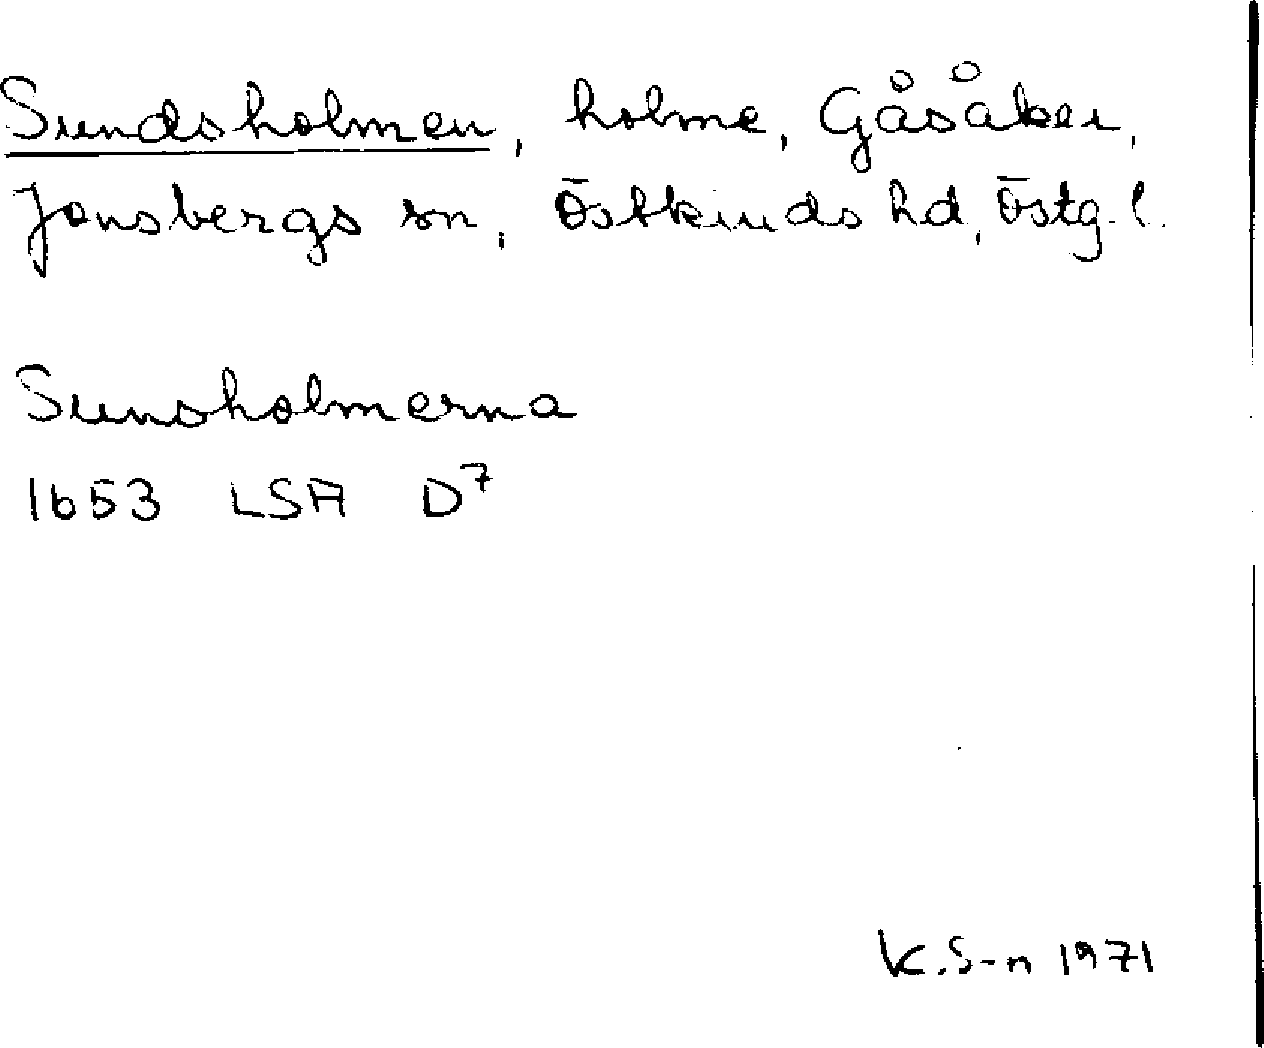 Sundsholmen, holme, Gåsåker,
Jonsbergs sn, Östkinds hd, Östg. l.
Sunsholmerna
1653 LSA D7
K.S-n 1971